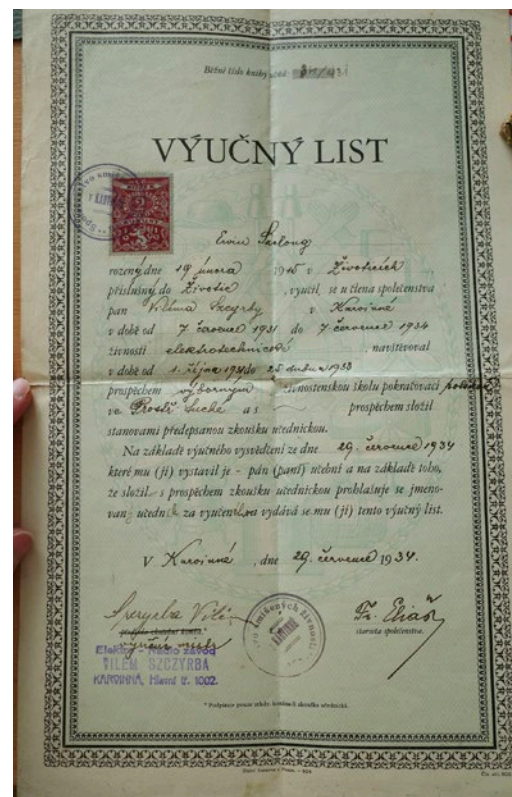 Běžné číslo knihy učňů:
VÝUČNÝ LIST
2
Ervin Szelong
rozený dne 19 února 1915 v Životicích
příslušný do Životic, vyučil se u člena společenstva
pan Viléma Szczyrby v Karvinné
v době od 7. července 1931 do 7. července 1934
živnosti elektrotechnické, navštěvoval
v době od 1. října 1931 do 25. dubna 1933
prospěchem výborným živnostenskou školu pokračovací
ve Prostř. Suché a s prospěchem složil
stanovami předepsanou zkoušku učednickou.
Na základě výučného vysvědčení ze dne 29. července 1934
které mu (jí) vystavil je - pán (paní) učební a na základě toho,
že složil s prospěchem zkoušku učednickou prohlašuje se jmeno-
van učedník za vyučen vydává se mu (jí) tento výuční list.
V Karvinné, dne 29. července 1934.
Szczyrba Vilém
Fr. Eliáš
starosta společenstva.
Elektro - Radio závod
VILÉM SZCZYRBA
KARWINNÁ, Hlavní tř. 1002.